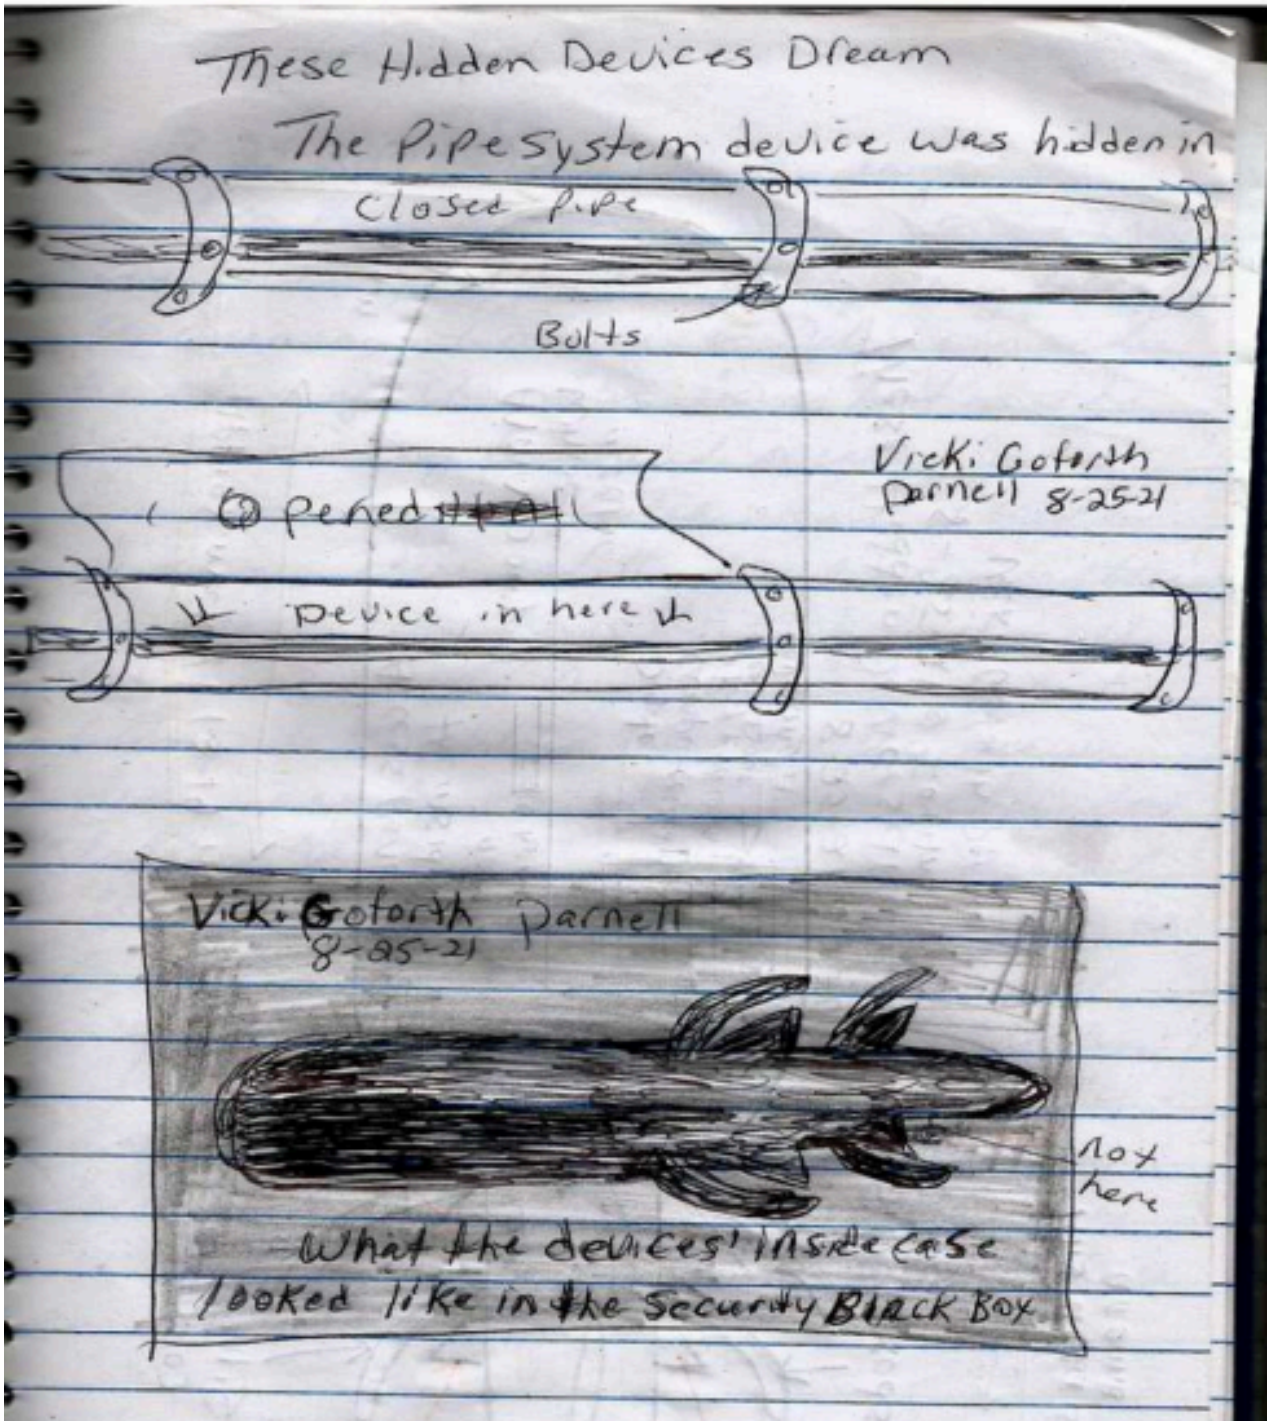 These Hidden Devices Dream
The Pipe System device was hidden in
Closed Pipe
Bolts
Opened
Vicki Goforth
Parnell 8-25-21
Device in here
Vicki Goforth Parnell
8-25-21
not
here
What the devices' inside case
looked like in the Security Black Box